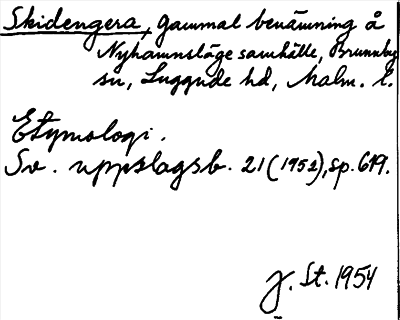 Skidengera, gammal benämning å
Nyhamnsläge samhälle, Brunnby
sn, Luggude hd, Malm. l.
Etymologi.
Sv. uppslagsb. 21 (1952), sp. 619.
J. St. 1954